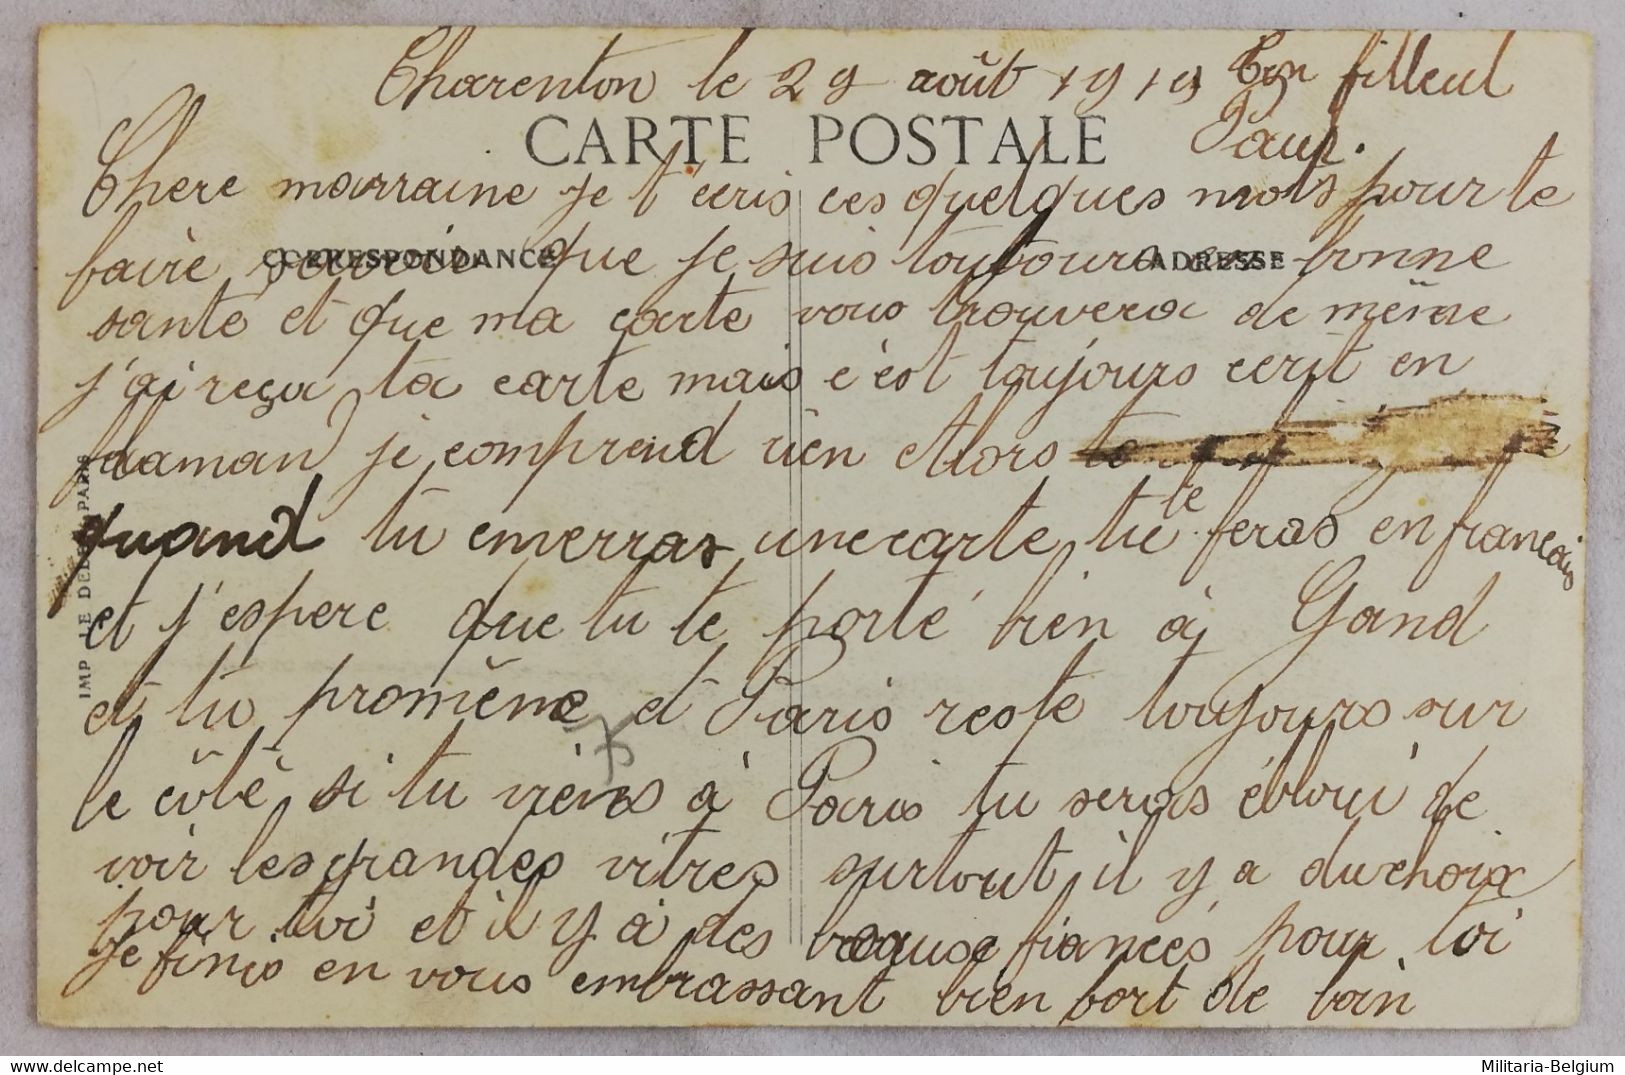 Charenton le 29 août 1919 Ton filleul
Paul.
CARTE POSTALE
Chere marraine je t'écris ces quelques mots pour te
CORRESPONDANCE
ADRESSE
faire savoir que je suis toujours en bonne
santé et que ma carte vous trouvera de même
j'ai reçu ta carte mais c'est toujours ecrit en
flaman je comprend rien alors
quand tu enverras une carte tu le feras en francais
et j'espere que tu te porte bien à Gand
et tu promène et Paris reste toujours sur
le côté si tu viens à Paris tu seras ébloui de
voir les grandes vitres surtout il y a du choix
pour toi et il y à des beause fiancés pour toi
je finis en vous embrassant bien fort de loin
IMP. LE DELEY PARIS
Militaria-Belgium